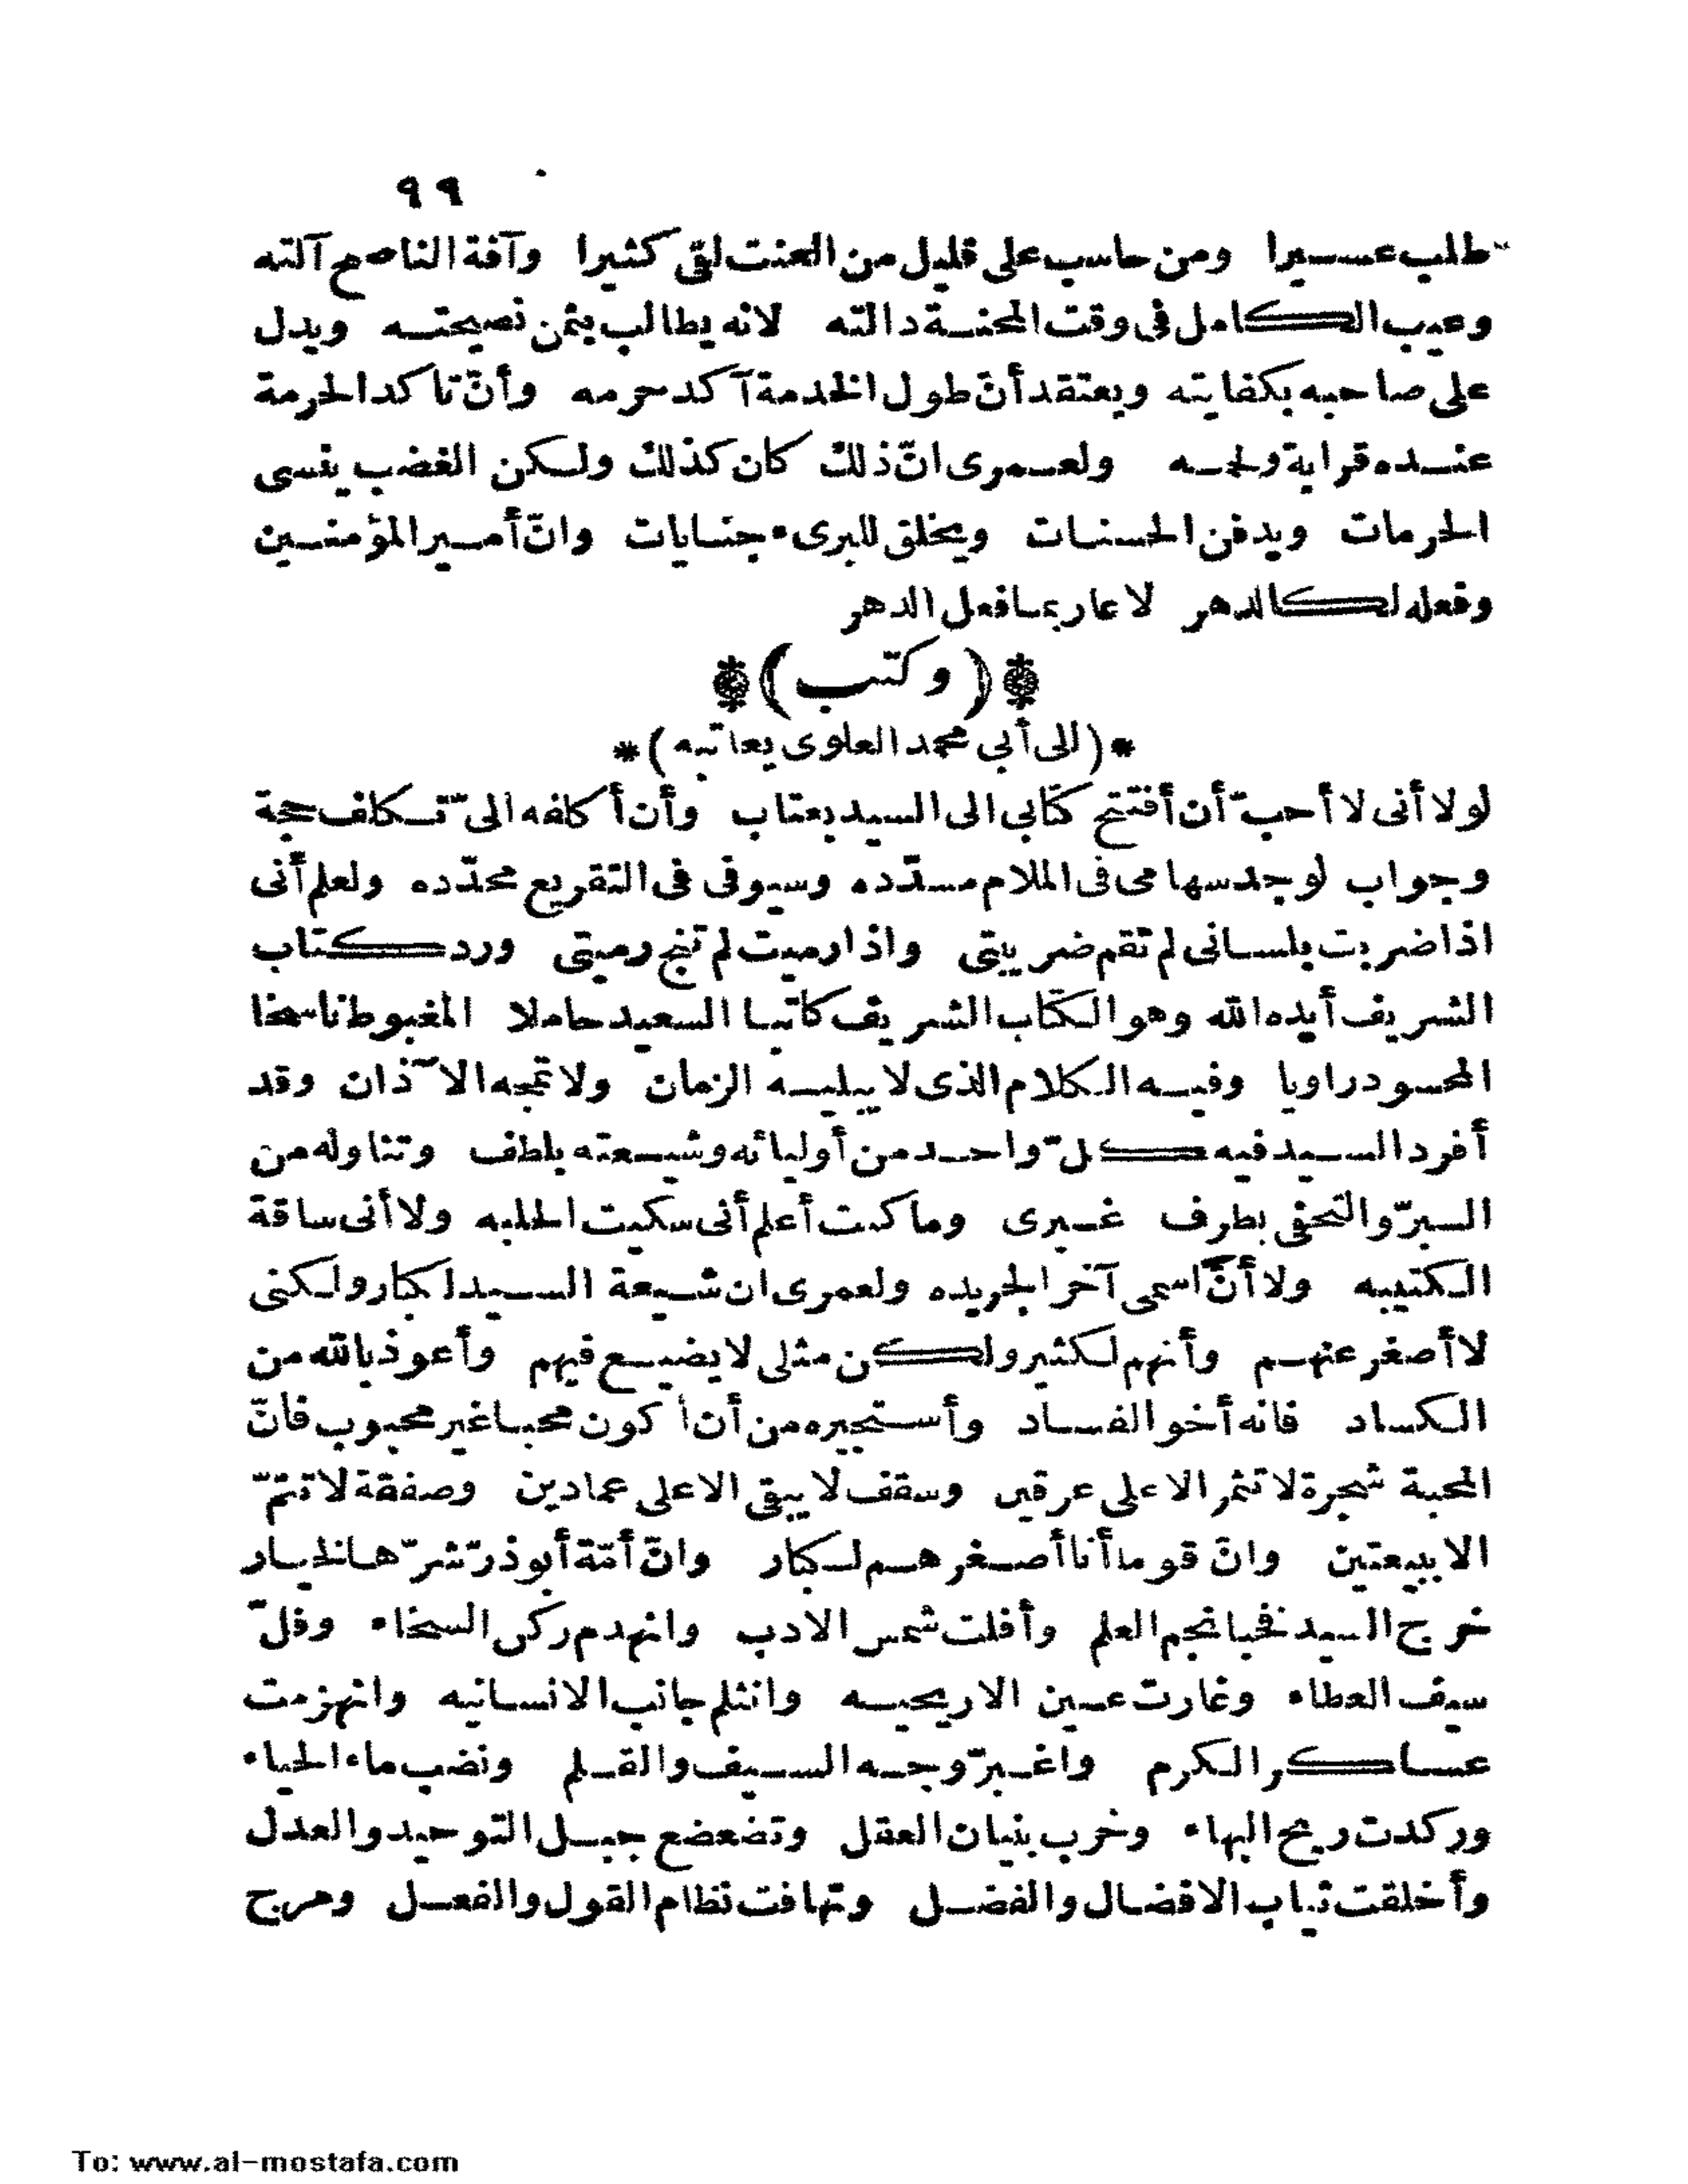 ٩٩
طلب عسيرا ومن حاسب على قليل من العنت لقى كثيرا وآفة الناصح آلته
وعيب الكامل فى وقت المحنة دالته لانه يطالب بثمن نصيحته ويدل
على صاحبه بكفايته ويعتقد أنّ طول الخدمة آكد حرمه وأنّ تأكد الحرمة
عنده قرابة ولحمه ولعمرى انّ ذلك كان كذلك ولكن الغضب ينسى
الحرمات ويدفن الحسنات ويخلق للبرىء جنايات وانّ أمير المؤمنين
وفعله لكالدهر لا عار بما فعل الدهر
❋(وكتب)❋
*(الى أبى محمد العلوى يعاتبه)*
لولا أنى لا أحبّ أن أفتتح كتابى الى السيد بعتاب وأن أكلفه الىّ تكلف حجة
وجواب لوجد سهامى فى الملام مسدّده وسيوفى فى التقريع محدّده ولعلم أنى
اذا ضربت بلسانى لم تقم ضريبتى واذا رميت لم تنج رميتى ورد كتاب
الشريف أيده الله وهو الكتاب الشريف كاتبا السعيد حاملا المغبوط ناسخا
المحسود راويا وفيه الكلام الذى لا يبليه الزمان ولا تمجه الآذان وقد
أفرد السيد فيه كلّ واحد من أوليائه وشيعته بلطف وتناوله من
البرّ والتحفى بطرف غيرى وما كنت أعلم أنى سكيت الحلبه ولا أنى ساقة
الكتيبه ولا أنّ اسمى آخر الجريده ولعمرى ان شيعة السيد لكبار ولكنى
لا أصغر عنهم وأنهم لكثير ولكن مثلى لا يضيع فيهم وأعوذ بالله من
الكساد فانه أخو الفساد وأستجيره من أن أكون محبا غير محبوب فانّ
المحبة شجرة لا تثمر الا على عرقين وسقف لا يبقى الا على عمادين وصفقة لا تتمّ
الا ببيعتين وانّ قوما أنا أصغرهم لكبار وانّ أمّة أبو ذرّ شرّها لخيار
خرج السيد فخبا نجم العلم وأفلت شمس الادب وانهدم ركن السخاء وفلّ
سيف العطاء وغارت عين الاريحيه وانثلم جانب الانسانيه وانهزمت
عساكر الكرم واغبرّ وجه السيف والقلم ونضب ماء الحياء
وركدت ريح البهاء وخرب بنيان العقل وتضعضع جبل التوحيد والعدل
وأخلقت ثياب الافضال والفضل وتهافت نظام القول والفعل ومرج
To: www.al-mostafa.com